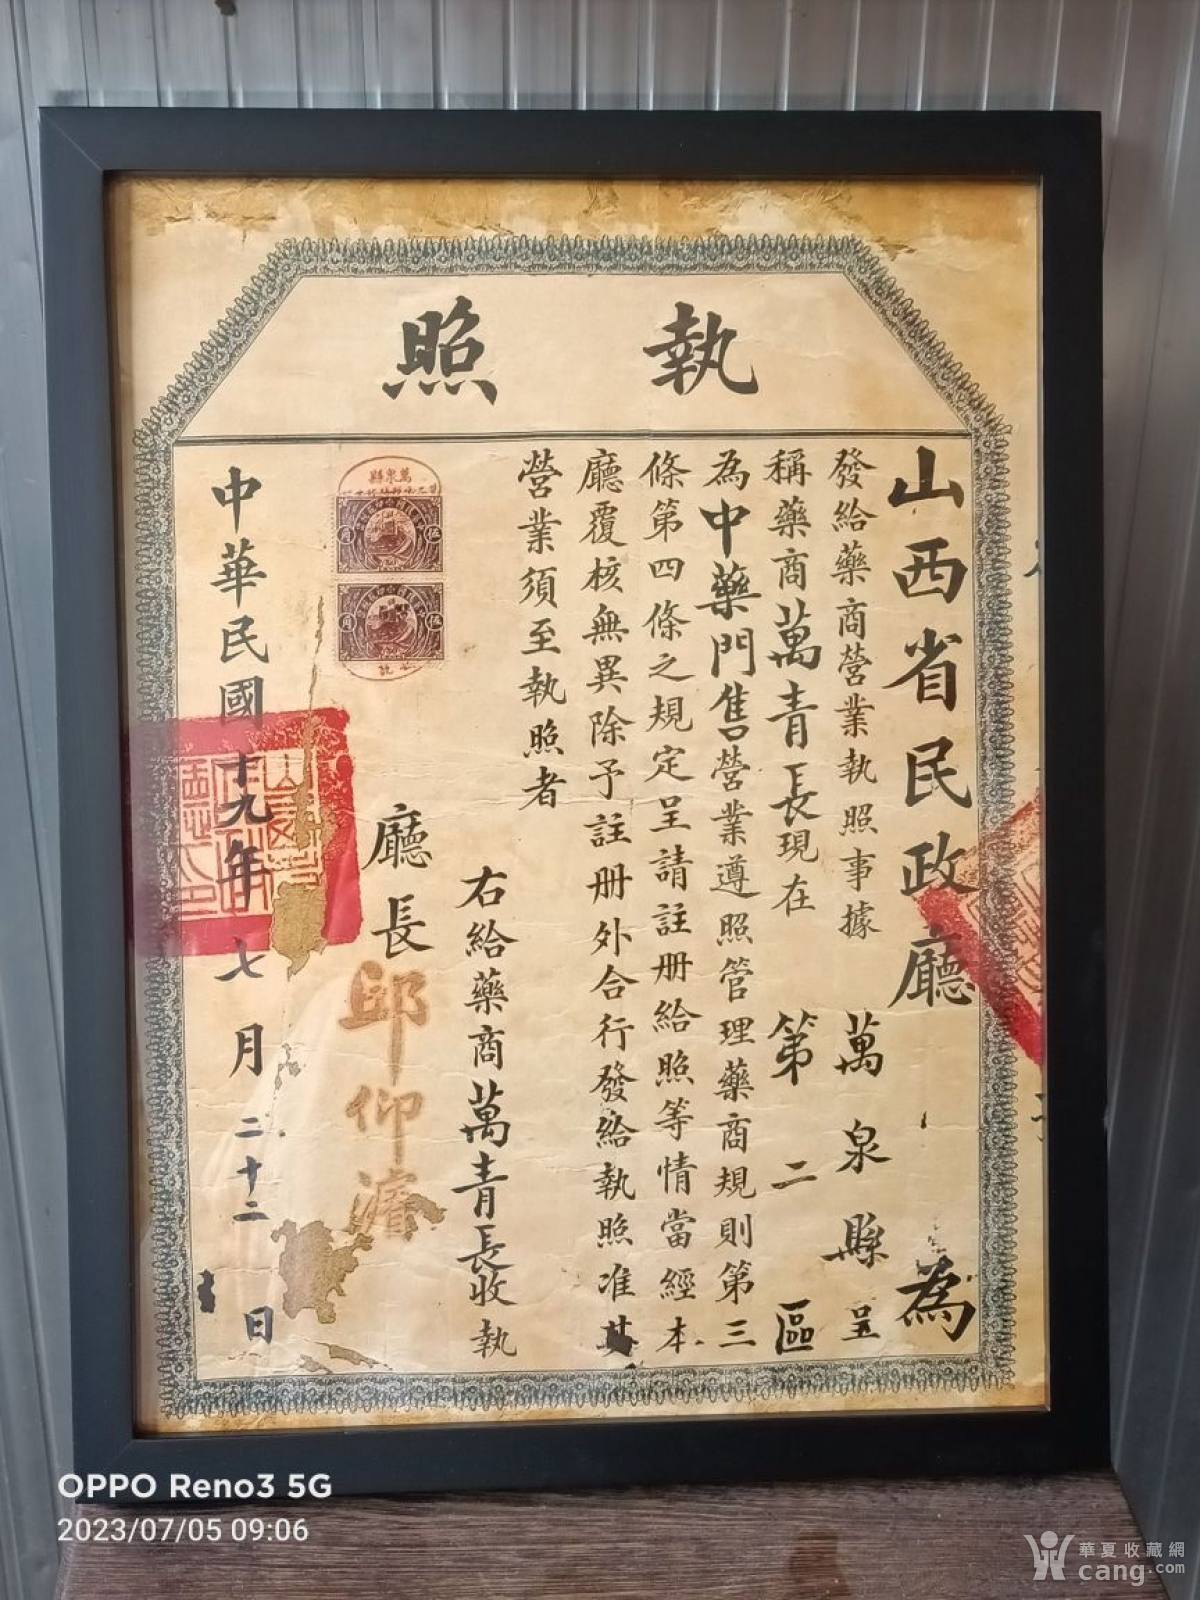 執照
山西省民政廳為
發給藥商營業執照事據萬泉縣呈
稱藥商萬青長現在第二區
為中藥門售營業遵照管理藥商規則第三
條第四條之規定呈請註冊給照等情當經本
廳覆核無異除予註冊外合行發給執照准其
營業須至執照者
右給藥商萬青長收執
萬泉縣
廳長邱仰濬
中華民國十九年七月二十二日
OPPO Reno3 5G
2023/07/05 09:06
華夏收藏網
cang.com